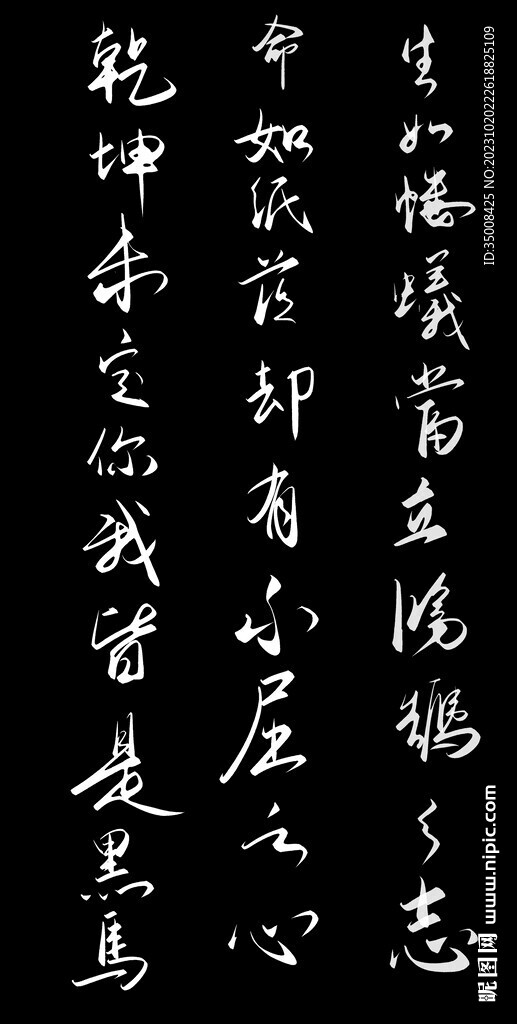 生如螻蟻當立鴻鵠之志
命如紙薄却有不屈之心
乾坤未定你我皆是黑馬
ID:35008425 NO:20231020222618825109
昵图网 www.nipic.com